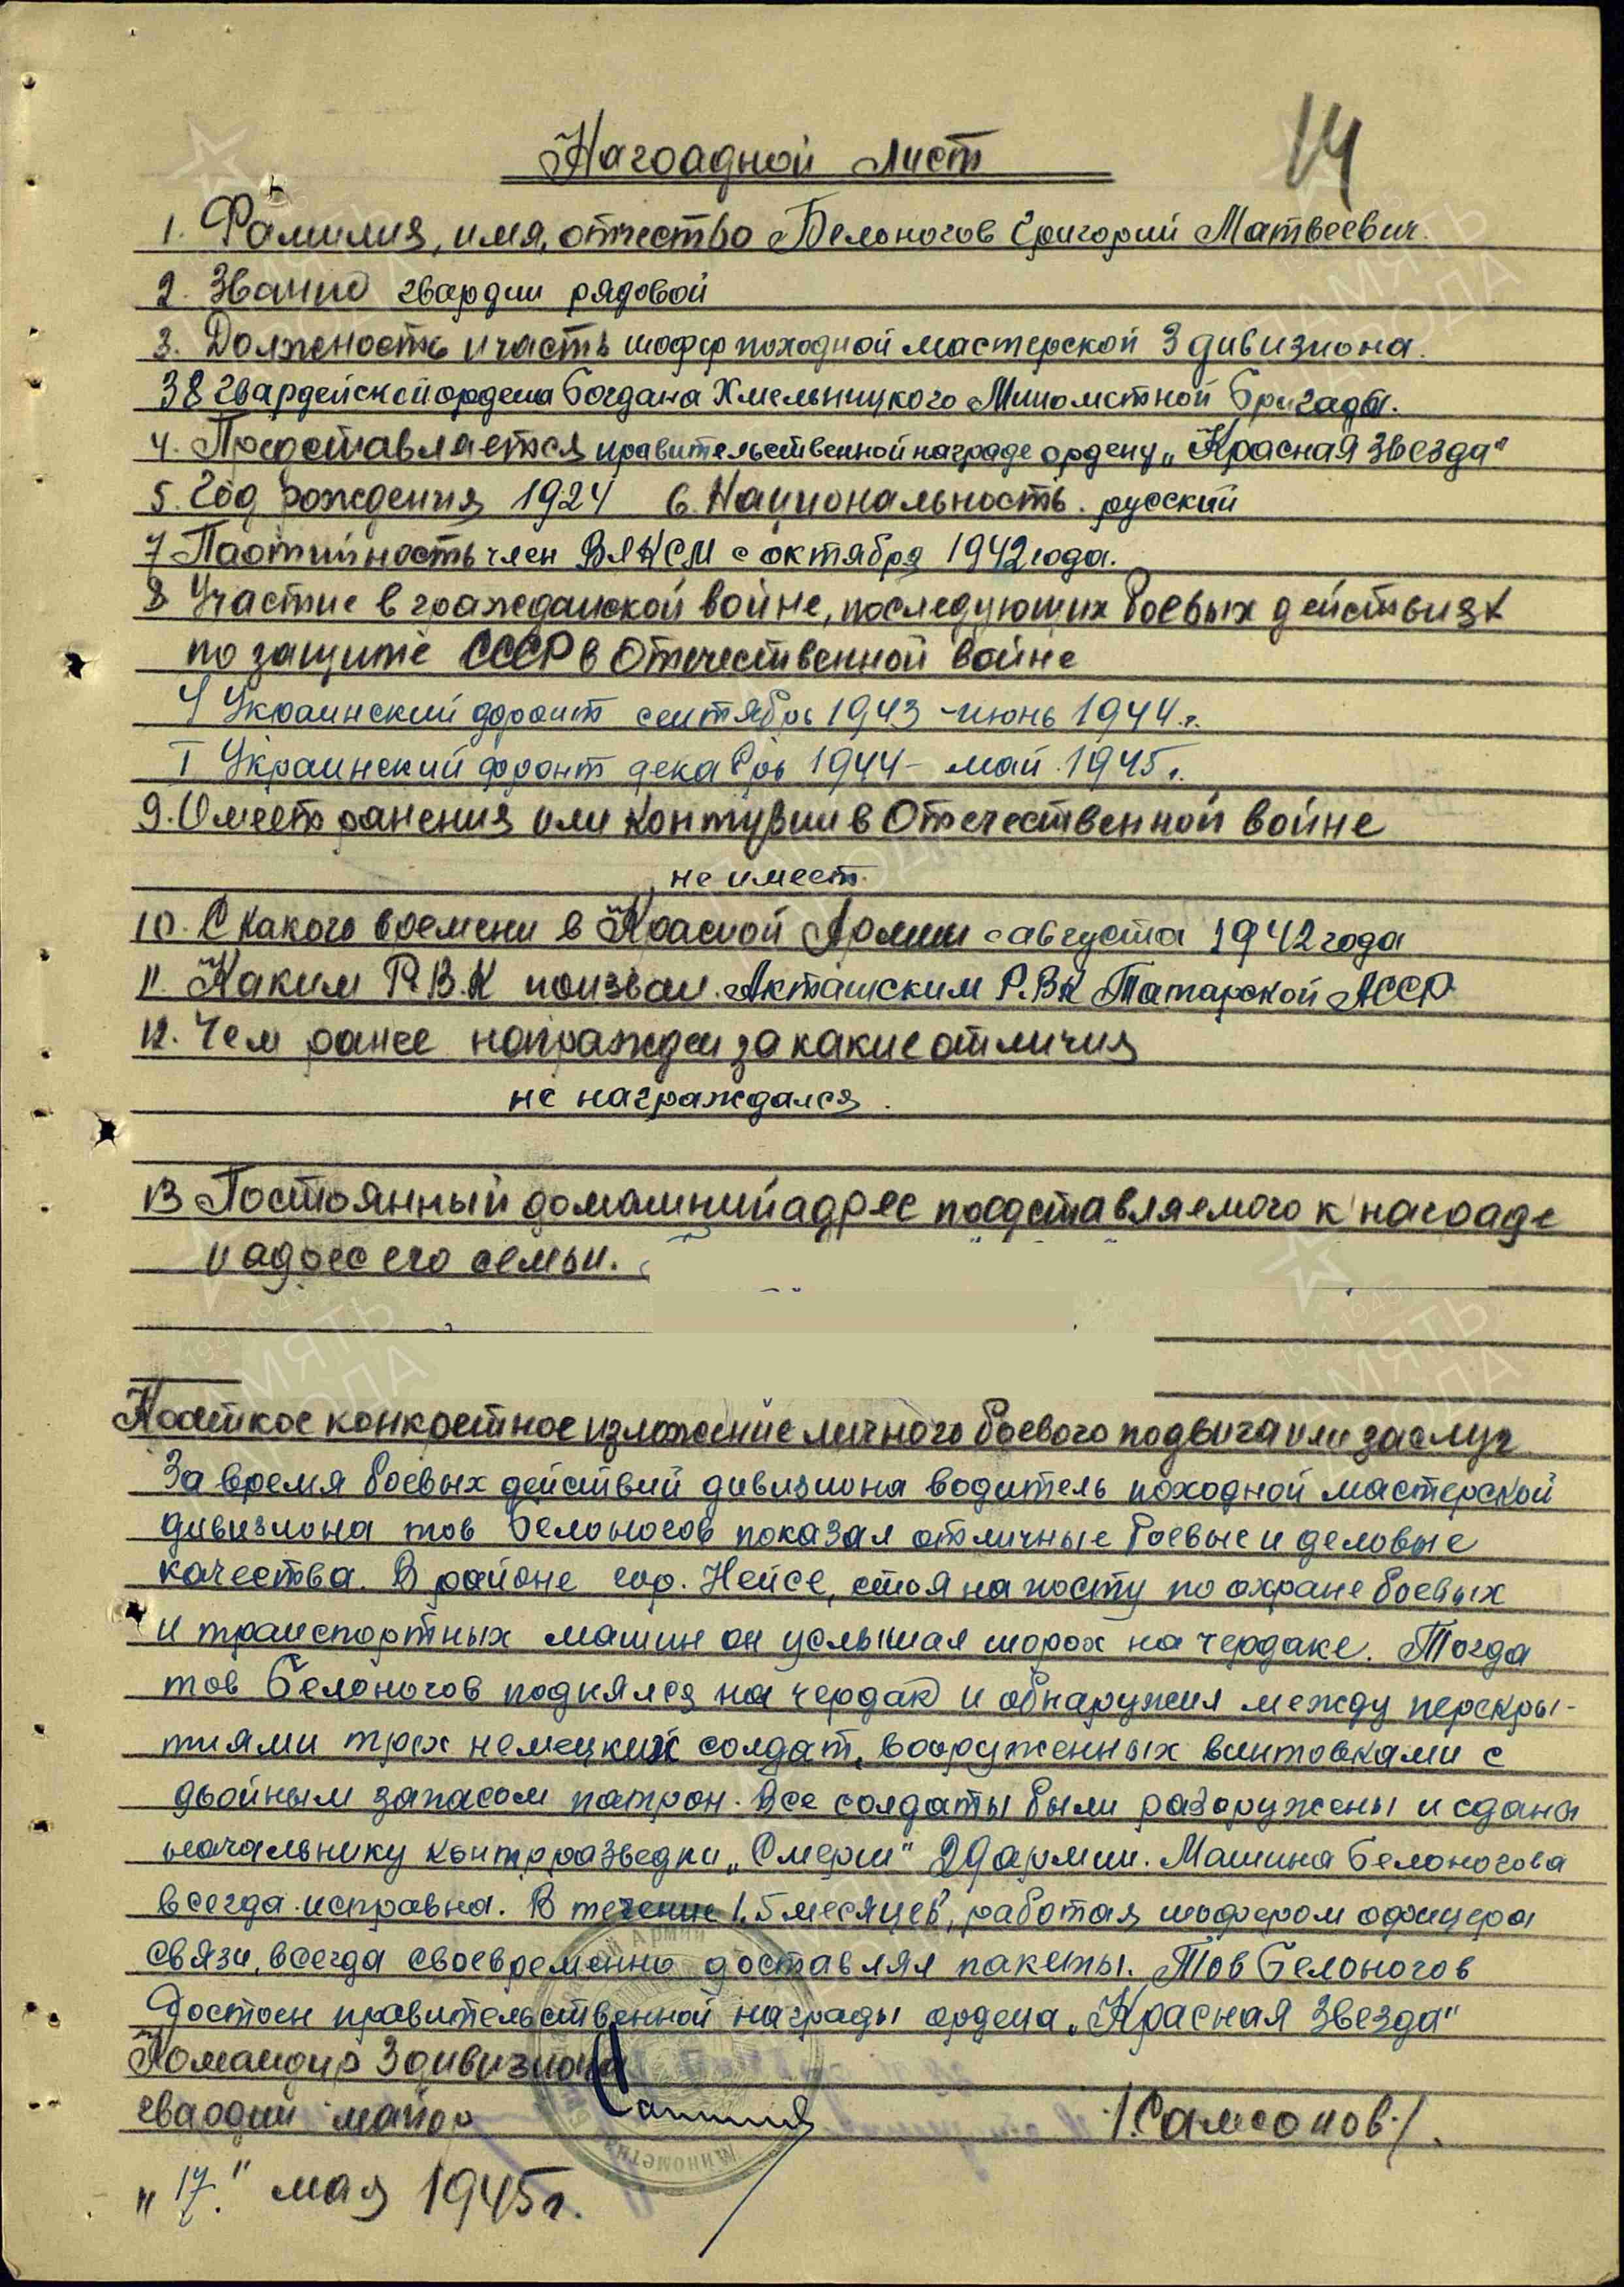 14
Наградной лист
1. Фамилия, имя, отчество Белоногов Григорий Матвеевич.
2. Звание гвардии рядовой
3. Должность и часть шофер походной мастерской 3 дивизиона.
38 гвардейской ордена Богдана Хмельницкого Минометной бригады.
4. Представляется правительственной награде ордену „Красная Звезда"
5. Год рождения 1924 6. Национальность. русский
7 Партийность член ВЛКСМ с октября 1942 года.
8 Участие в гражданской войне, последующих боевых действиях
по защите СССР в Отечественной войне
4 Украинский фронт сентябрь 1943 - июнь 1944 г.
I Украинский фронт декабрь 1944 - май 1945 г.
9. Имеет ранения или контузии в Отечественной войне
не имеет.
10. С какого времени в Красной Армии с августа 1942 года
11. Каким Р.В.К призван. Акташским Р.ВК Татарской АССР
12. Чем ранее награжден за какие отличия
не награждался.
13 Постоянный домашний адрес представляемого к награде
и адрес его семьи.
Краткое конкретное изложение личного боевого подвига или заслуг
За время боевых действий дивизиона водитель походной мастерской
дивизиона тов Белоногов показал отличные боевые и деловые
качества. В районе гор. Нейсе, стоя на посту по охране боевых
и транспортных машин он услышал шорох на чердаке. Тогда
тов Белоногов поднялся на чердак и обнаружил между перекры-
тиями трех немецких солдат, вооруженных винтовками с
двойным запасом патрон. Все солдаты были разоружены и сданы
начальнику контрразведки „Смерш" 29 армии. Машина Белоногова
всегда исправна. В течение 1,5 месяцев, работая шофером офицера
связи, всегда своевременно доставлял пакеты. Тов Белоногов
Достоин правительственной награды ордена „Красная Звезда"
Командир 3 дивизиона
гвардии майор /Самсонов/.
„17." мая 1945 г.